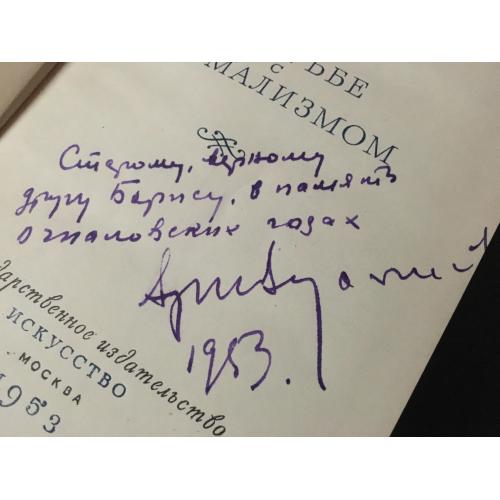 ЬБЕ
С
МАЛИЗМОМ
Старому, верному
другу Борису, в память
о чкаловских годах
1953.
дарственное издательство
ИСКУССТВО
МОСКВА
1953